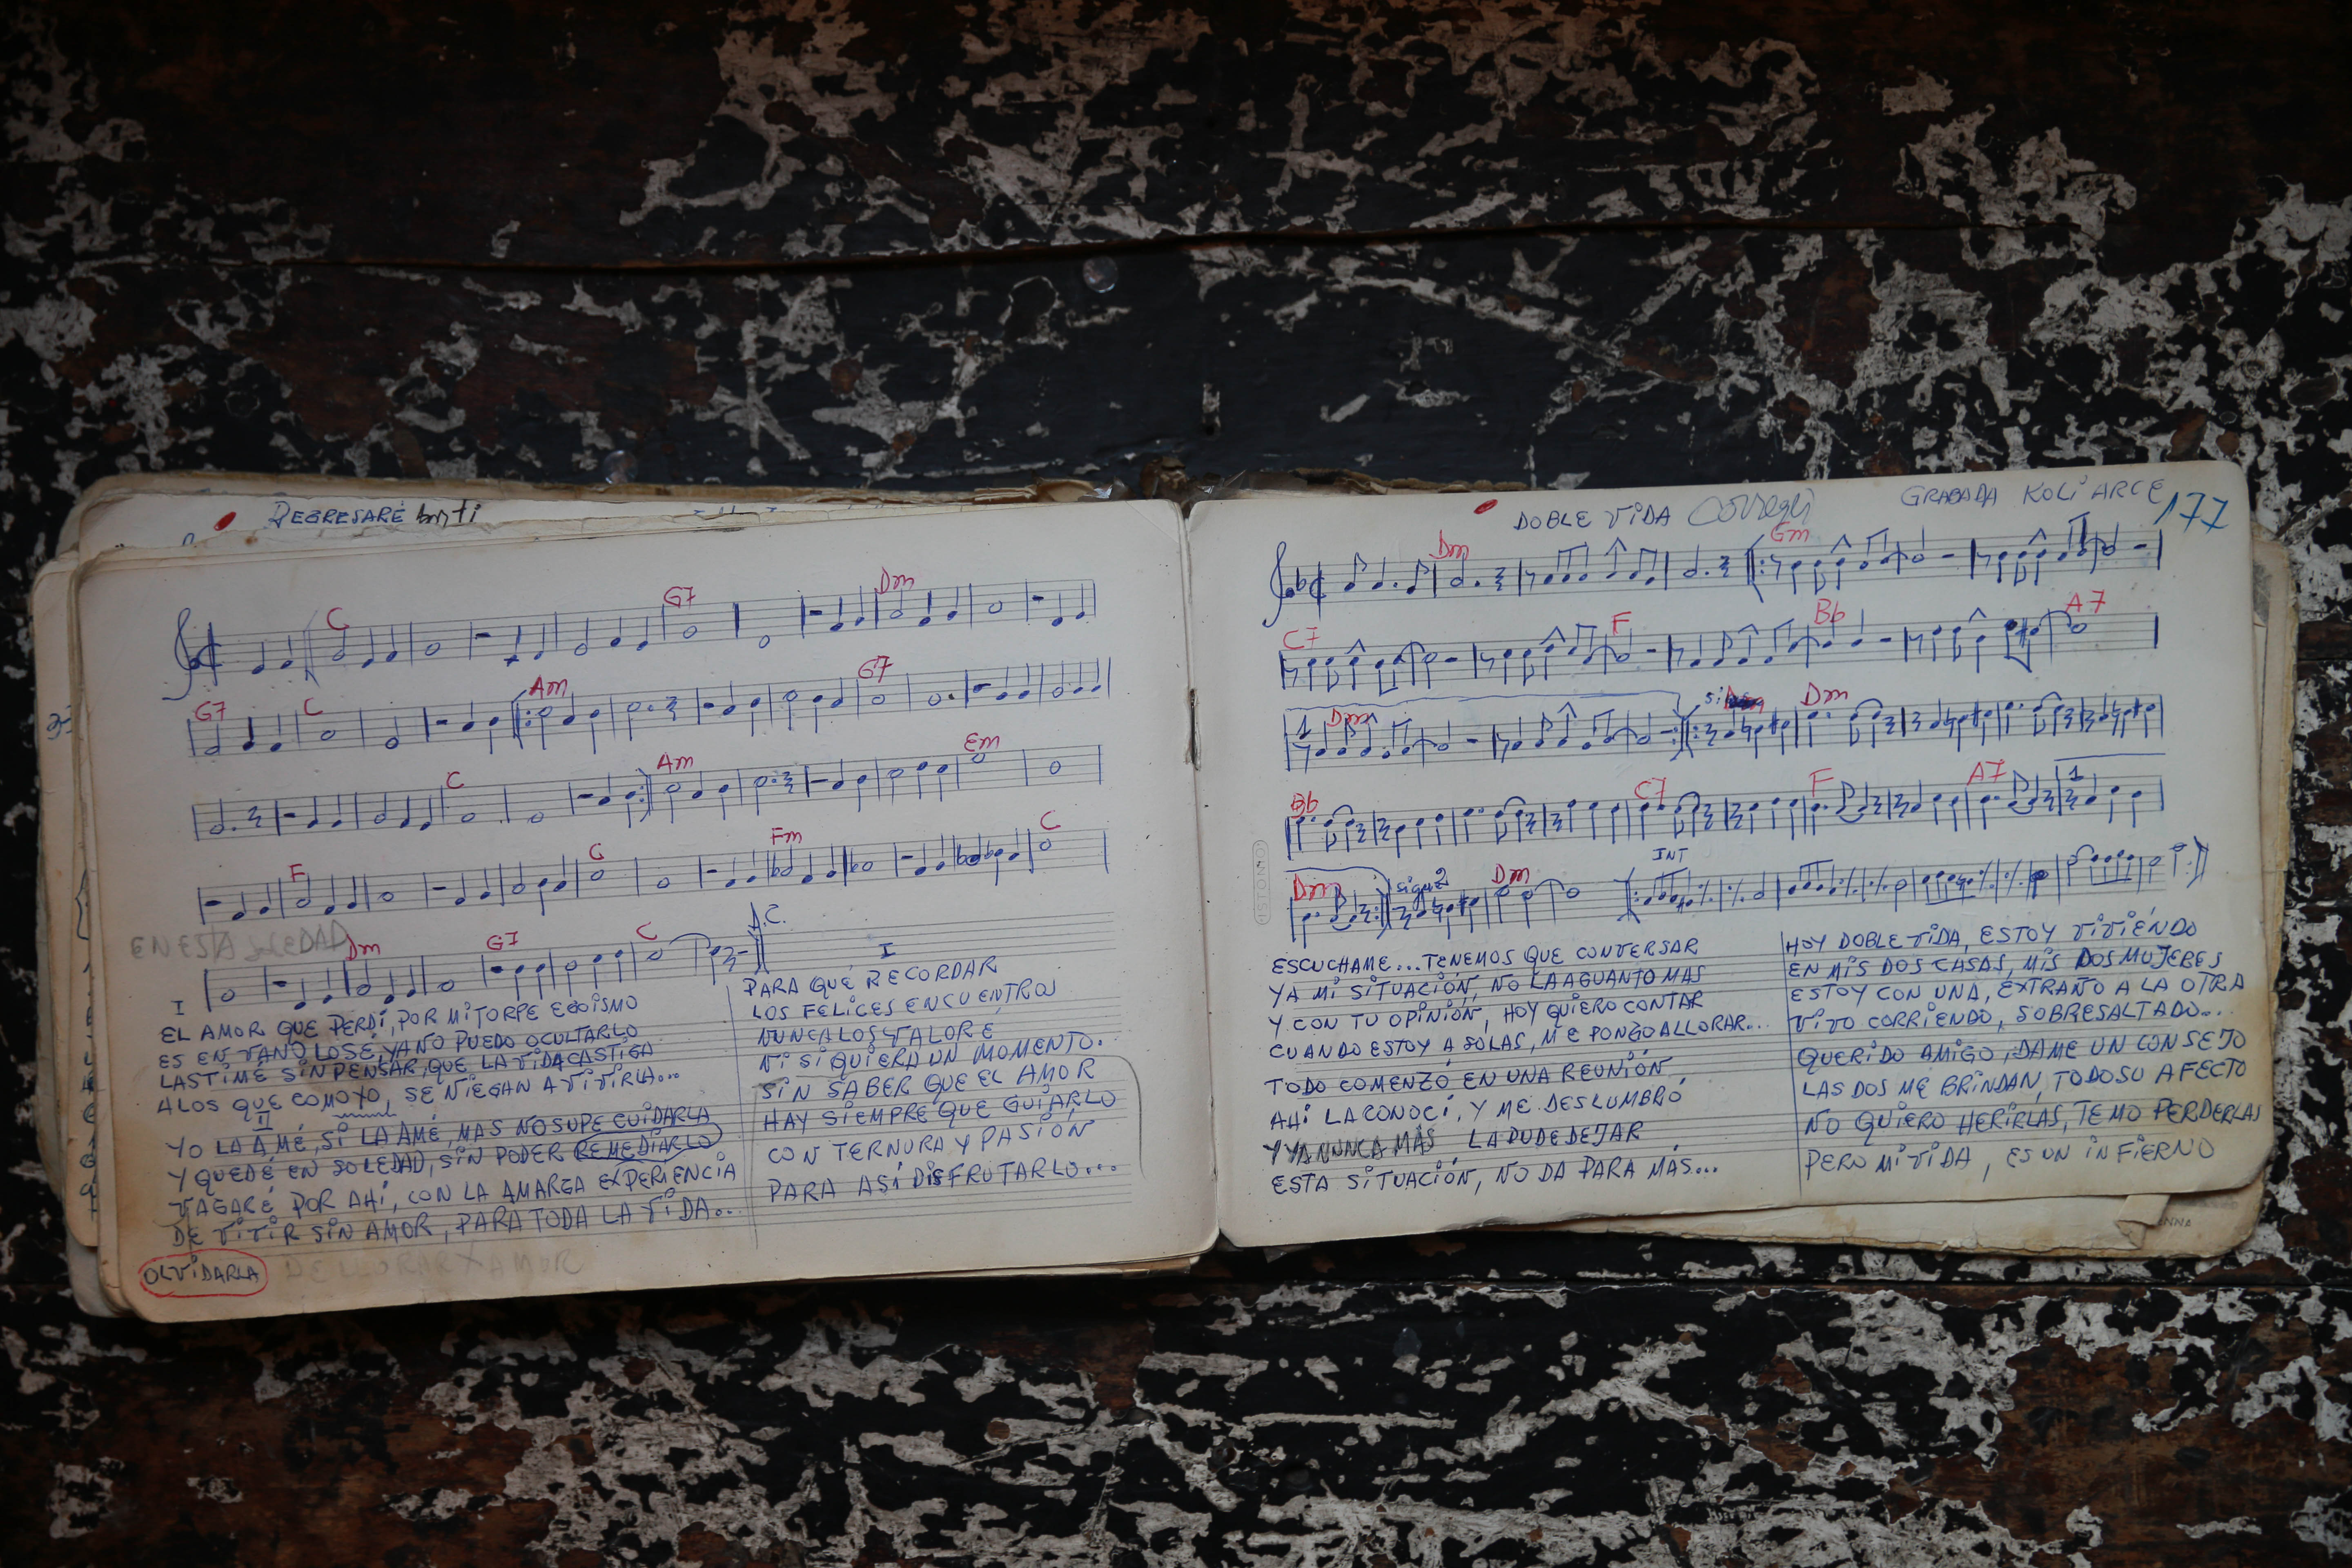 REGRESARÉ
C G7 Dm
G7 C Am G7
C Am Em
F G Fm C
EN ESTA SOLEDAD
Dm G7 C D.C.
I
EL AMOR QUE PERDÍ, POR MI TORPE EGOISMO
ES EN VANO LO SÉ, YA NO PUEDO OCULTARLO
LASTIMÉ SIN PENSAR, QUE LA VIDA CASTIGA
A LOS QUE COMO YO, SE NIEGAN A VIVIRLA...
II
YO LA AMÉ, SI LA AMÉ, MAS NO SUPE CUIDARLA
Y QUEDÉ EN SOLEDAD, SIN PODER REMEDIARLO
VAGARÉ POR AHÍ, CON LA AMARGA EXPERIENCIA
DE VIVIR SIN AMOR, PARA TODA LA VIDA...
OLVIDARLA DE LLORAR X AMOR
I
PARA QUÉ RECORDAR
LOS FELICES ENCUENTROS
NUNCA LOS VALORÉ
NI SIQUIERA UN MOMENTO.
SIN SABER QUE EL AMOR
HAY SIEMPRE QUE GUIARLO
CON TERNURA Y PASIÓN
PARA ASÍ DISFRUTARLO...
DOBLE VIDA GRABADA KOLI ARCE 177
Dm Gm
C7 F Bb A7
1 Dm Dm
Bb C7 F A7 1
Dm sigue 2 Dm INT
ESCUCHAME... TENEMOS QUE CONVERSAR
YA MI SITUACIÓN, NO LA AGUANTO MAS
Y CON TU OPINIÓN, HOY QUIERO CONTAR
CUANDO ESTOY A SOLAS, ME PONGO A LLORAR...
TODO COMENZÓ EN UNA REUNIÓN
AHÍ LA CONOCÍ, Y ME DESLUMBRÓ
Y YA NUNCA MÁS LA PUDE DEJAR
ESTA SITUACIÓN, NO DA PARA MÁS...
HOY DOBLE VIDA, ESTOY VIVIÉNDO
EN MIS DOS CASAS, MIS DOS MUJERES
ESTOY CON UNA, EXTRAÑO A LA OTRA
VIVO CORRIENDO, SOBRESALTADO...
QUERIDO AMIGO, DAME UN CONSEJO
LAS DOS ME BRINDAN, TODO SU AFECTO
NO QUIERO HERIRLAS, TEMO PERDERLAS
PERO MI VIDA, ES UN INFIERNO